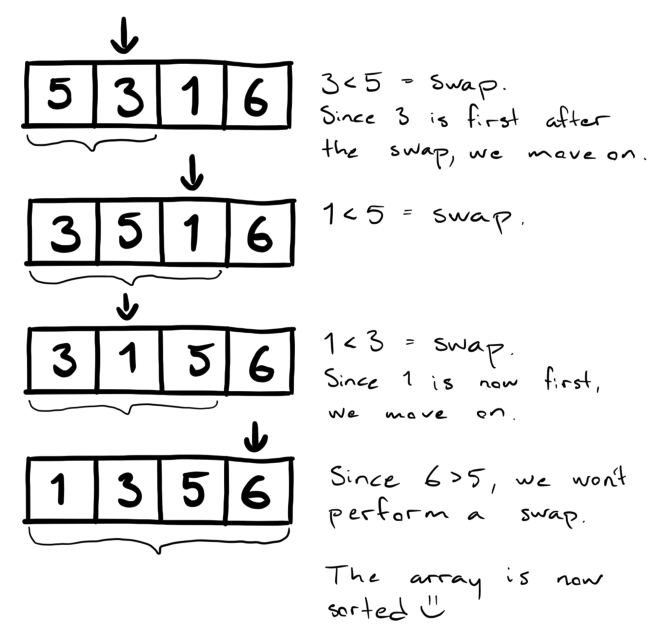 5 3 1 6
3<5 = swap.
Since 3 is first after
the swap, we move on.
3 5 1 6
1<5 = swap.
3 1 5 6
1<3 = swap.
Since 1 is now first,
we move on.
1 3 5 6
Since 6>5, we won't
perform a swap.
The array is now
sorted